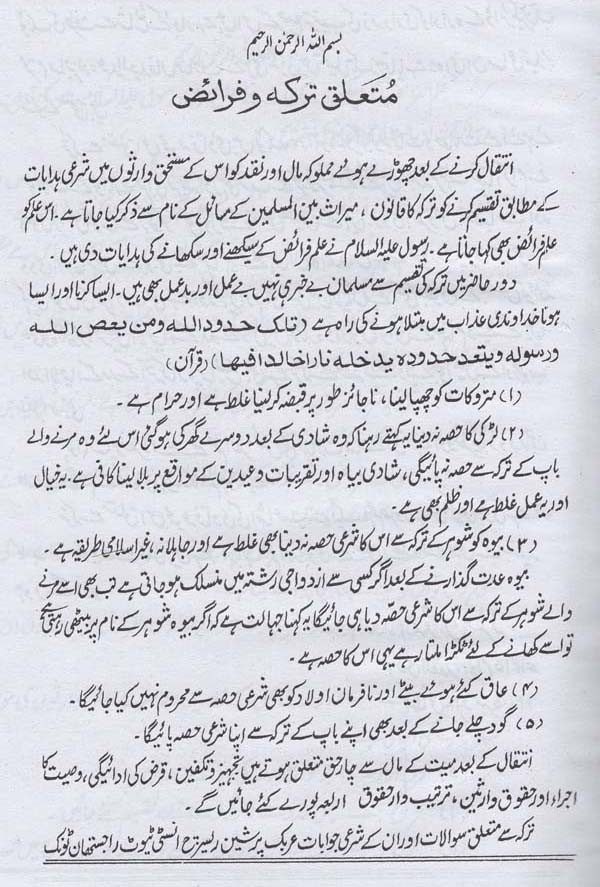 بسم اللہ الرحمٰن الرحیم
مُتعلق ترکہ و فرائض
انتقال کرنے کے بعد چھوڑے ہوئے مملوکہ مال اور نقد کو اس کے مستحق وارثوں میں شرعی ہدایات
کے مطابق تقسیم کرنے کو ترکہ کا قانون ، میراث بین المسلمین کے مسائل کے نام سے ذکر کیا جاتا ہے ۔ اس علم کو
علم فرائض بھی کہا جاتا ہے ۔ رسول علیہ السلام نے علم فرائض کے سیکھنے اور سکھانے کی ہدایات دی ہیں ۔
دور حاضر میں ترکہ کی تقسیم سے مسلمان بے خبر ہی نہیں بے عمل اور بد عمل بھی ہیں ۔ ایسا کرنا اور ایسا
ہونا خداوندی عذاب میں مبتلا ہونے کی راہ ہے (تلک حدود اللہ ومن یعص اللہ
ورسولہ ویتعد حدودہ یدخلہ نارا خالدا فیہا) (قرآن)
(۱) متروکات کو چھپا لینا ، ناجائز طور پر قبضہ کر لینا غلط ہے اور حرام ہے ۔
(۲) لڑکی کا حصہ نہ دینا یہ کہتے رہنا کہ وہ شادی کے بعد دوسرے گھر کی ہو گئی اس لئے وہ مرنے والے
باپ کے ترکہ سے حصہ نہ پائیگی ، شادی بیاہ اور تقریبات و عیدین کے مواقع پر بلا لینا کافی ہے ۔ یہ خیال
اور یہ عمل غلط ہے اور ظلم بھی ہے ۔
(۳) بیوہ کو شوہر کے ترکہ سے اس کا شرعی حصہ نہ دینا بھی غلط ہے اور جاہلانہ ، غیر اسلامی طریقہ ہے ۔
بیوہ عدت گذارنے کے بعد اگر کسی سے ازدواجی رشتہ میں منسلک ہو جاتی ہے تب بھی اسے مرنے
والے شوہر کے ترکہ سے اس کا شرعی حصّہ دیا ہی جائیگا یہ کہنا جہالت ہے کہ اگر بیوہ شوہر کے نام پر بیٹھی رہتی ہے
تو اسے کھانے کے لئے ٹکڑا ملتا رہے یہی اس کا حصہ ہے ۔
(۴) عاق کئے ہوئے بیٹے اور نافرمان اولاد کو بھی شرعی حصہ سے محروم نہیں کیا جائیگا ۔
(۵) گود چلے جانے کے بعد بھی اپنے باپ کے ترکہ سے اپنا شرعی حصہ پائیگا ۔
انتقال کے بعد میت کے مال سے چار حق متعلق ہوتے ہیں تجہیز و تکفین ، قرض کی ادائیگی ، وصیت کا
اجراء اور حقوق وارثین ، ترتیب وار حقوق اربعہ پورے کئے جائیں گے ۔
ترکہ سے متعلق سوالات اور ان کے شرعی جوابات عربک پرشین ریسرچ انسٹی ٹیوٹ راجستھان ٹونک